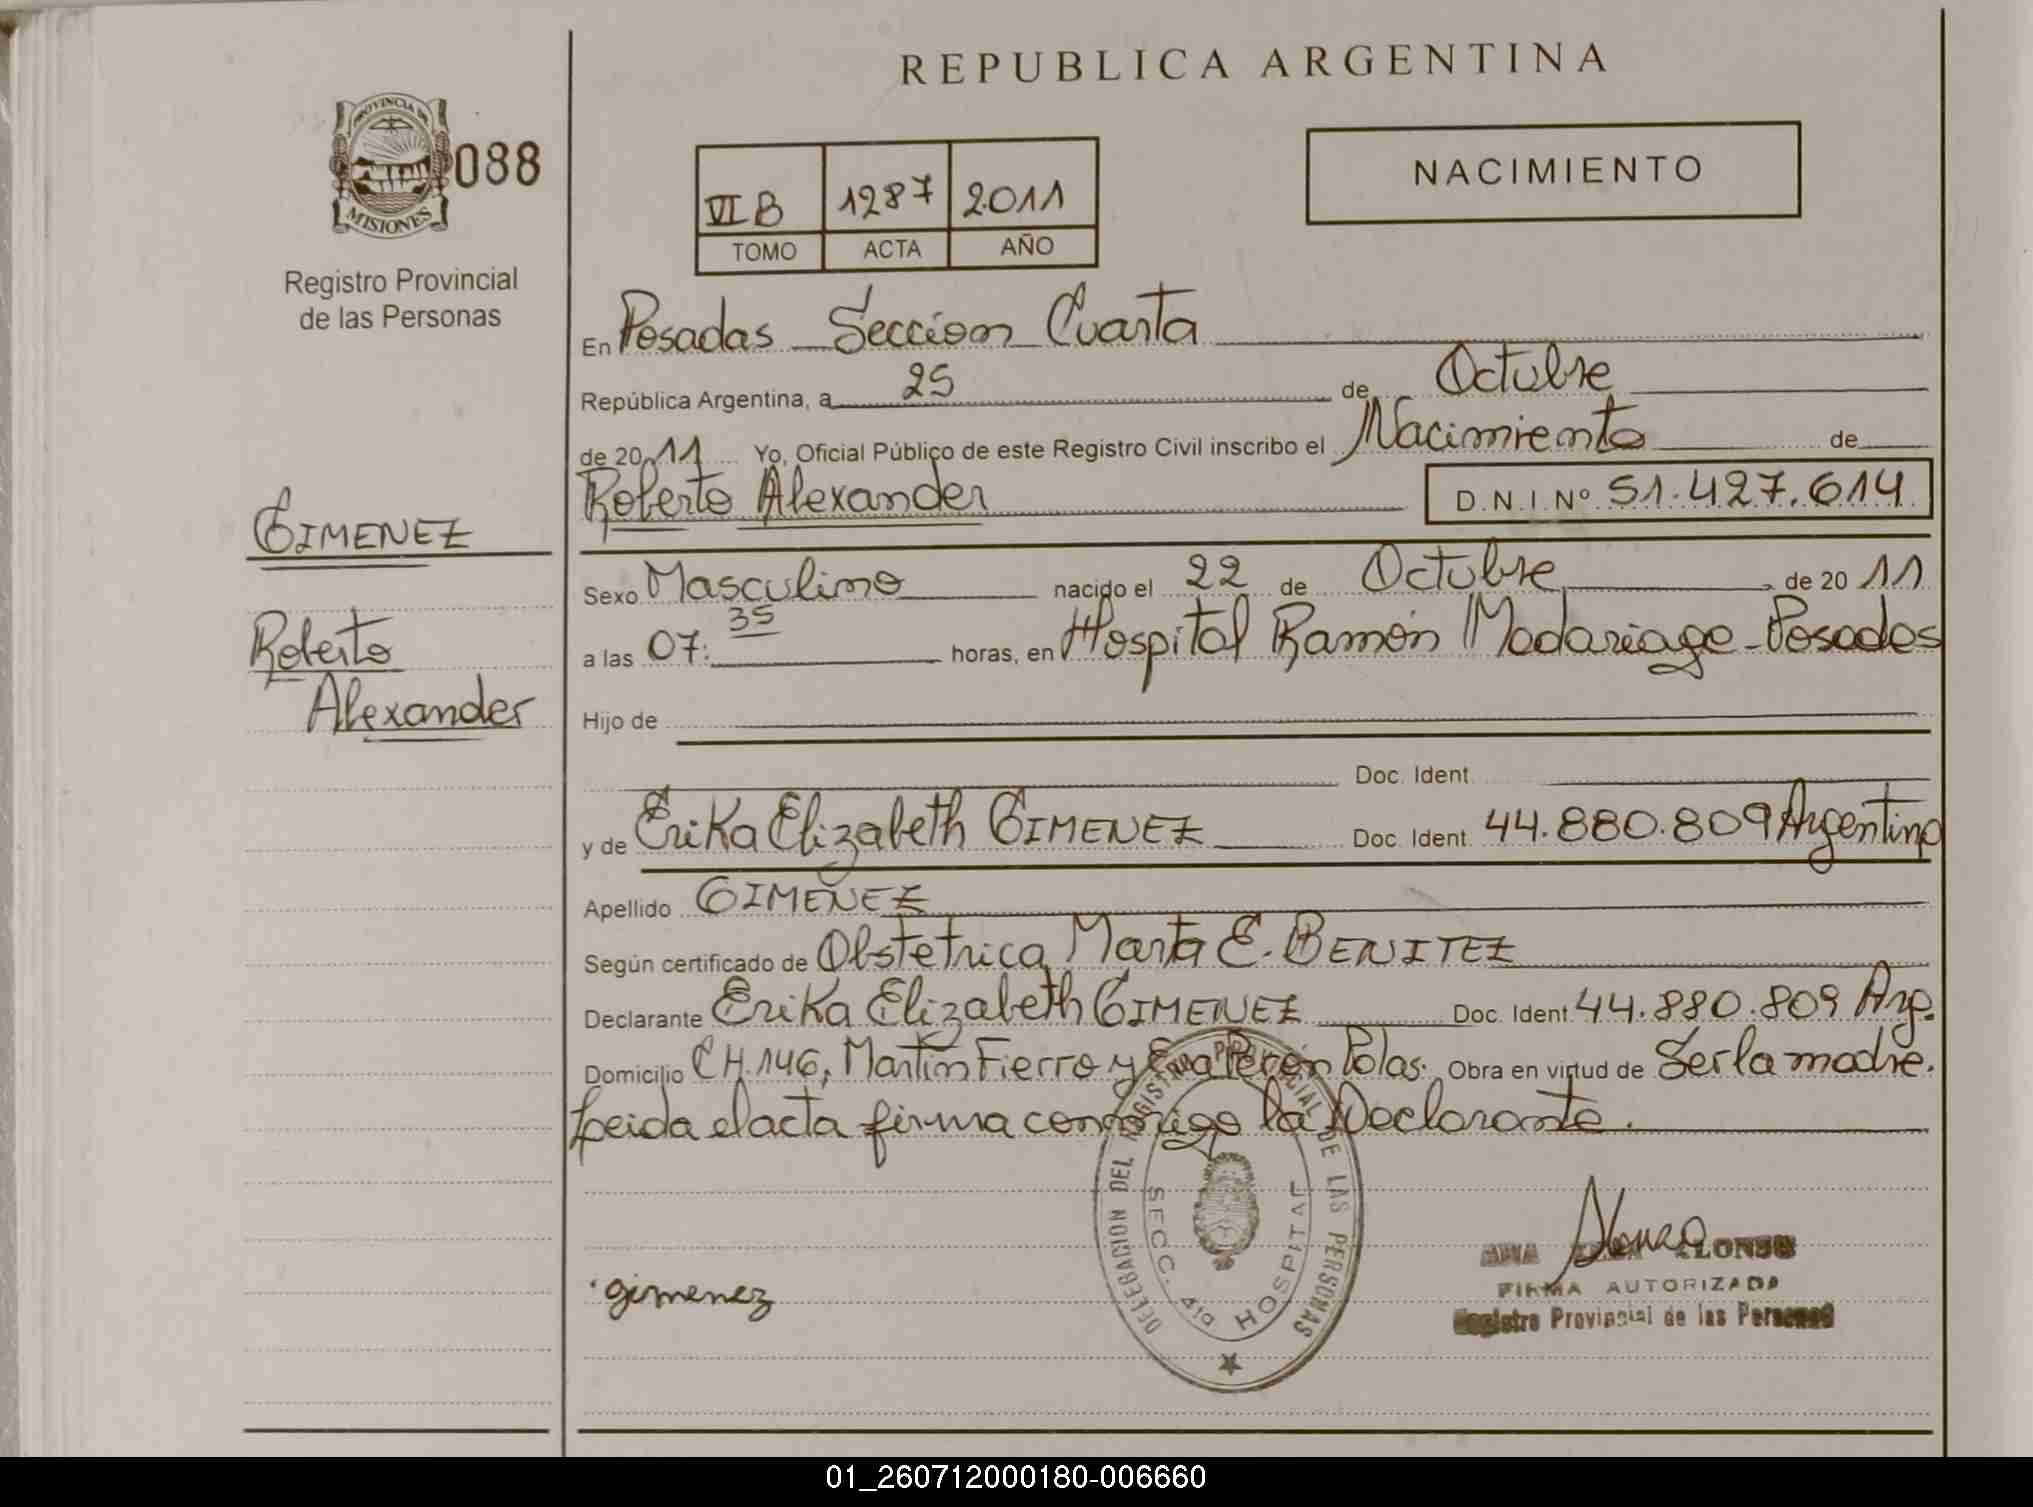 REPUBLICA ARGENTINA
PROVINCIA DE
MISIONES
088
Registro Provincial
de las Personas
VI B 1287 2011
TOMO ACTA AÑO
NACIMIENTO
En Posadas Seccion Cuarta
República Argentina, a 25 de Octubre
de 2011 Yo, Oficial Público de este Registro Civil inscribo el Nacimiento de
Roberto Alexander D.N.I.Nº 51.427.614
GIMENEZ
Roberto
Alexander
Sexo Masculino nacido el 22 de Octubre de 2011
a las 07:35 horas, en Hospital Ramón Madariaga - Posadas
Hijo de
Doc. Ident.
y de Erika Elizabeth GIMENEZ Doc. Ident. 44.880.809 Argentina
Apellido GIMENEZ
Según certificado de Obstetrica Marta E. BENITEZ
Declarante Erika Elizabeth GIMENEZ Doc. Ident. 44.880.809 Arg.
Domicilio CH.146, Martín Fierro y Eva Perón Pdas. Obra en virtud de Ser la madre.
Leida el acta firma conmigo la Declarante.
DELEGACION DEL REGISTRO PROVINCIAL DE LAS PERSONAS
SECC. 4ta HOSPITAL
gimenez
ANA ALONSO
FIRMA AUTORIZADA
Registro Provincial de las Personas
01_260712000180-006660